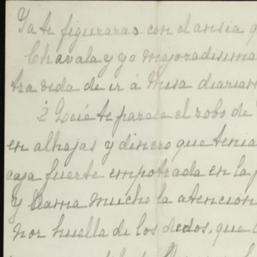 Ya te figuraras con el ansia q
Chavala y yo mejoradisima
tra vida de ir á Misa diariam
¿ Qué te parece el robo de
en alhajas y dinero que tenia
caja fuerte empotrada en la p
y llama mucho la atencion
por huella de los dedos, que